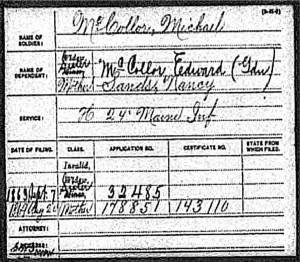 NAME OF SOLDIER: McCollor, Michael
NAME OF DEPENDENT: Widow, Minor, McCollor Edward (Gdn)
Mother, Sands, Nancy
SERVICE: H 24" Maine Inf
DATE OF FILING. CLASS. APPLICATION NO. CERTIFICATE NO. STATE FROM WHICH FILED.
Invalid,
Widow,
1863 Sept. 7 Minor, 32485
1869 Aug 20 Mother 178851 143110
ATTORNEY: